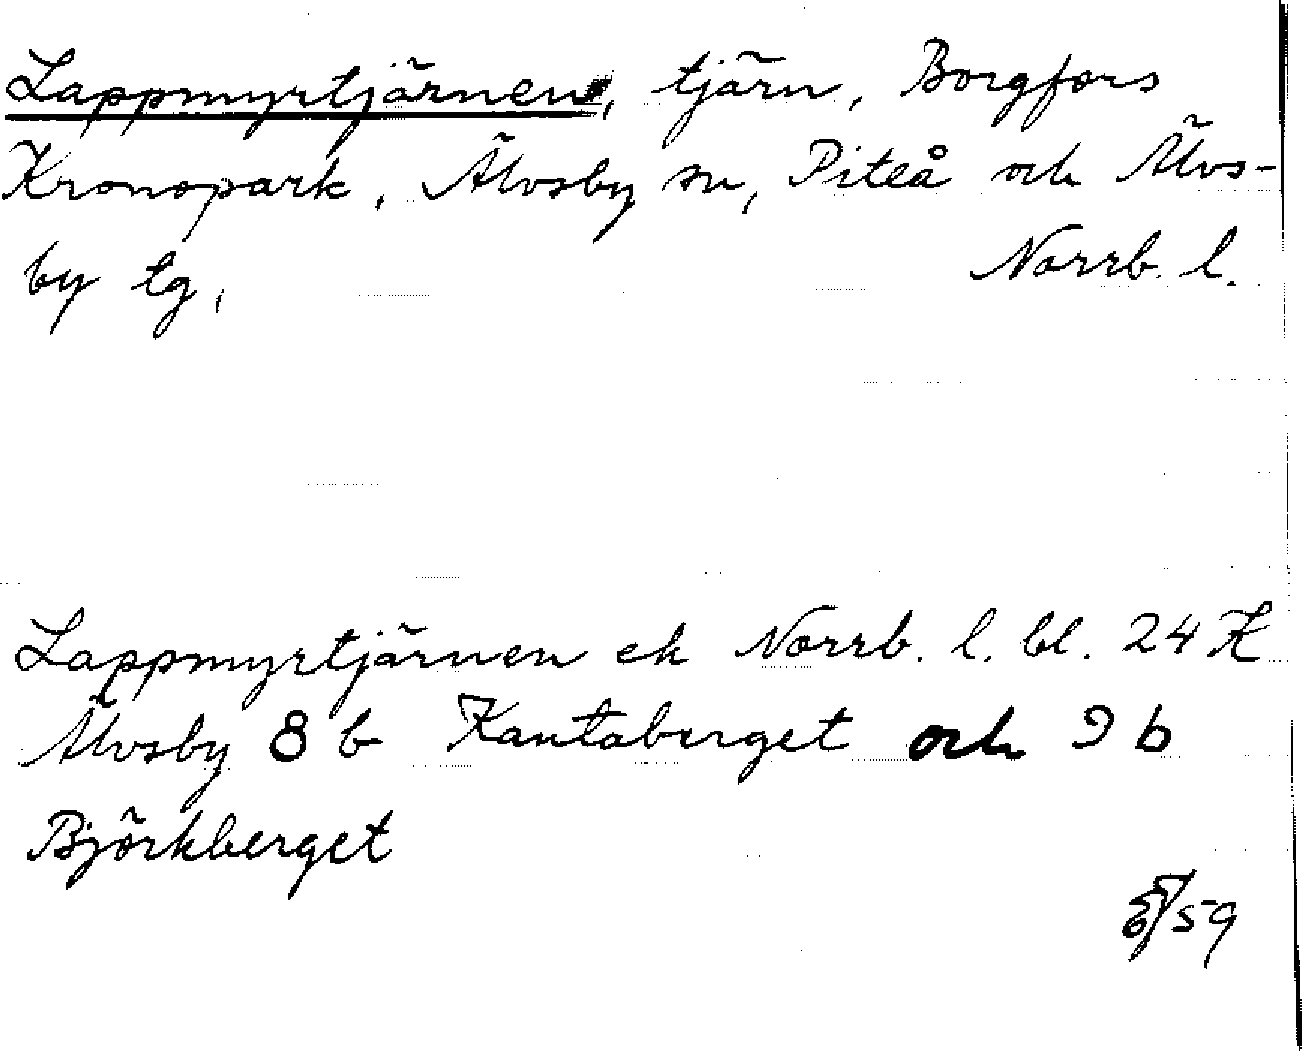 Lappmyrtjärnen, tjärn, Borgfors
Kronopark, Älvsby sn, Piteå och Älvs-
by tg,
Norrb. l.
Lappmyrtjärnen ek Norrb. l. bl. 24 K
Älvsby 8 b Kantaberget och 9 b
Björkberget